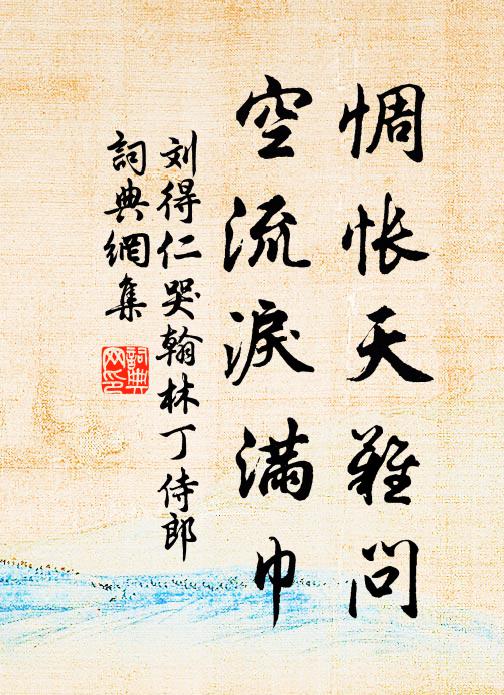 惆怅天难问
空流淚滿巾
刘得仁哭翰林丁侍郎
詞典網集
詞典
网印